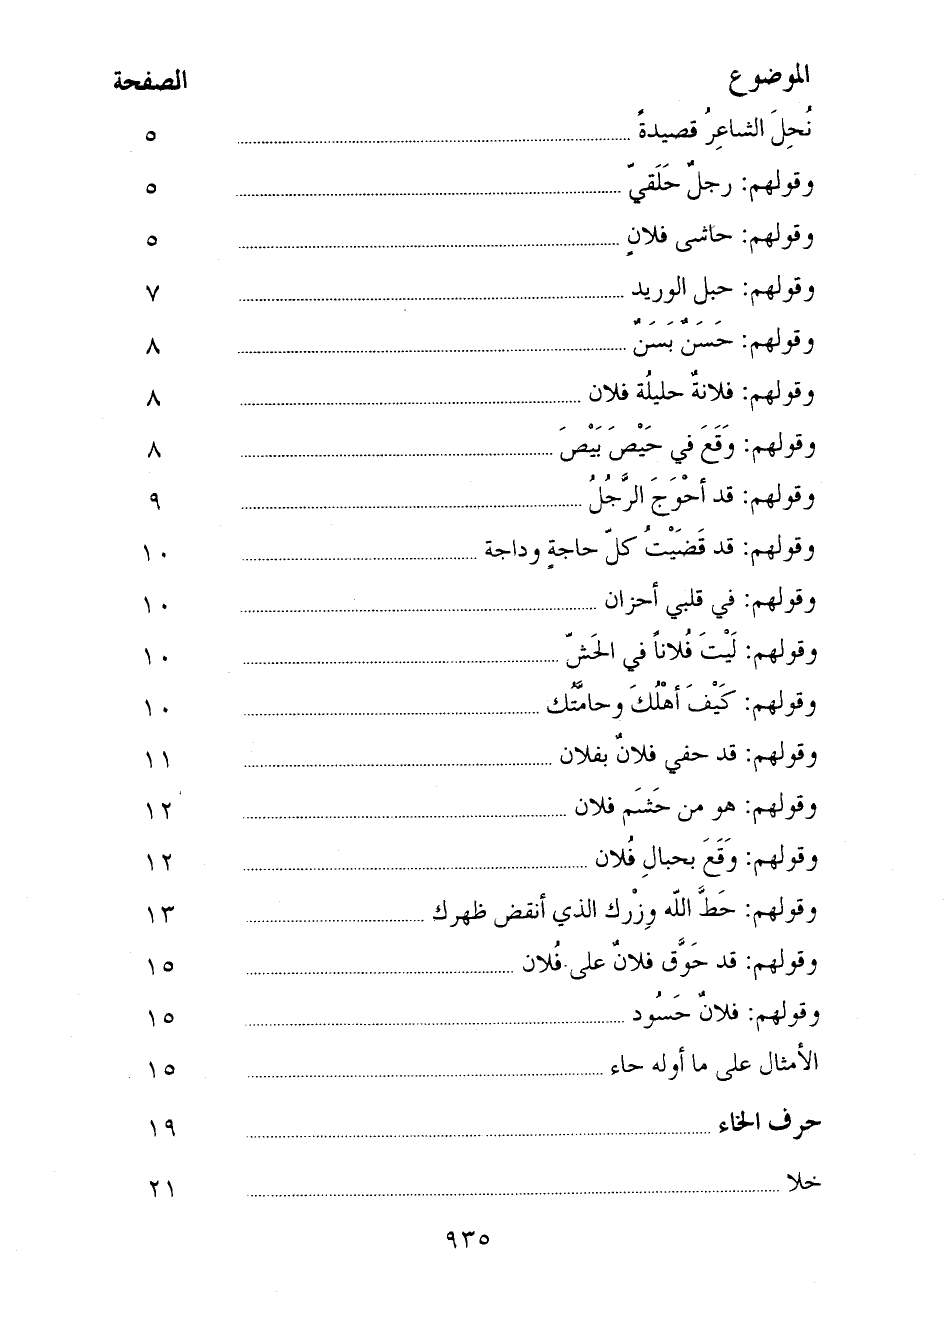 الموضوع الصفحة
نُحِلَ الشاعِرُ قصيدةً ........ ٥
وقولهم: رجلٌ حَلَقيّ ........ ٥
وقولهم: حاشى فلانٍ ........ ٥
وقولهم: حبل الوريد ........ ٧
وقولهم: حَسَنٌ بَسَنٌ ........ ٨
وقولهم: فلانةٌ حليلُة فلان ........ ٨
وقولهم: وَقَعَ في حَيْصَ بَيْصَ ........ ٨
وقولهم: قد أحْوَجَ الرَّجُلُ ........ ٩
وقولهم: قد قَضَيْتُ كلّ حاجةٍ وداجة ........ ١٠
وقولهم: في قلبي أحزان ........ ١٠
وقولهم: لَيْتَ فُلاناً في الحَشّ ........ ١٠
وقولهم: كَيْفَ أهْلُكَ وحامَّتُك ........ ١٠
وقولهم: قد حفي فلانٌ بفلان ........ ١١
وقولهم: هو من حَشَم فلان ........ ١٢
وقولهم: وَقَعَ بحبالِ فُلان ........ ١٢
وقولهم: حَطَّ اللّه وِزْرك الذي أنقض ظهرك ........ ١٣
وقولهم: قد حَوَّق فلانٌ على فُلان ........ ١٥
وقولهم: فلانٌ حَسُود ........ ١٥
الأمثال على ما أوله حاء ........ ١٥
حرف الخاء ........ ١٩
خلا ........ ٢١
٩٣٥